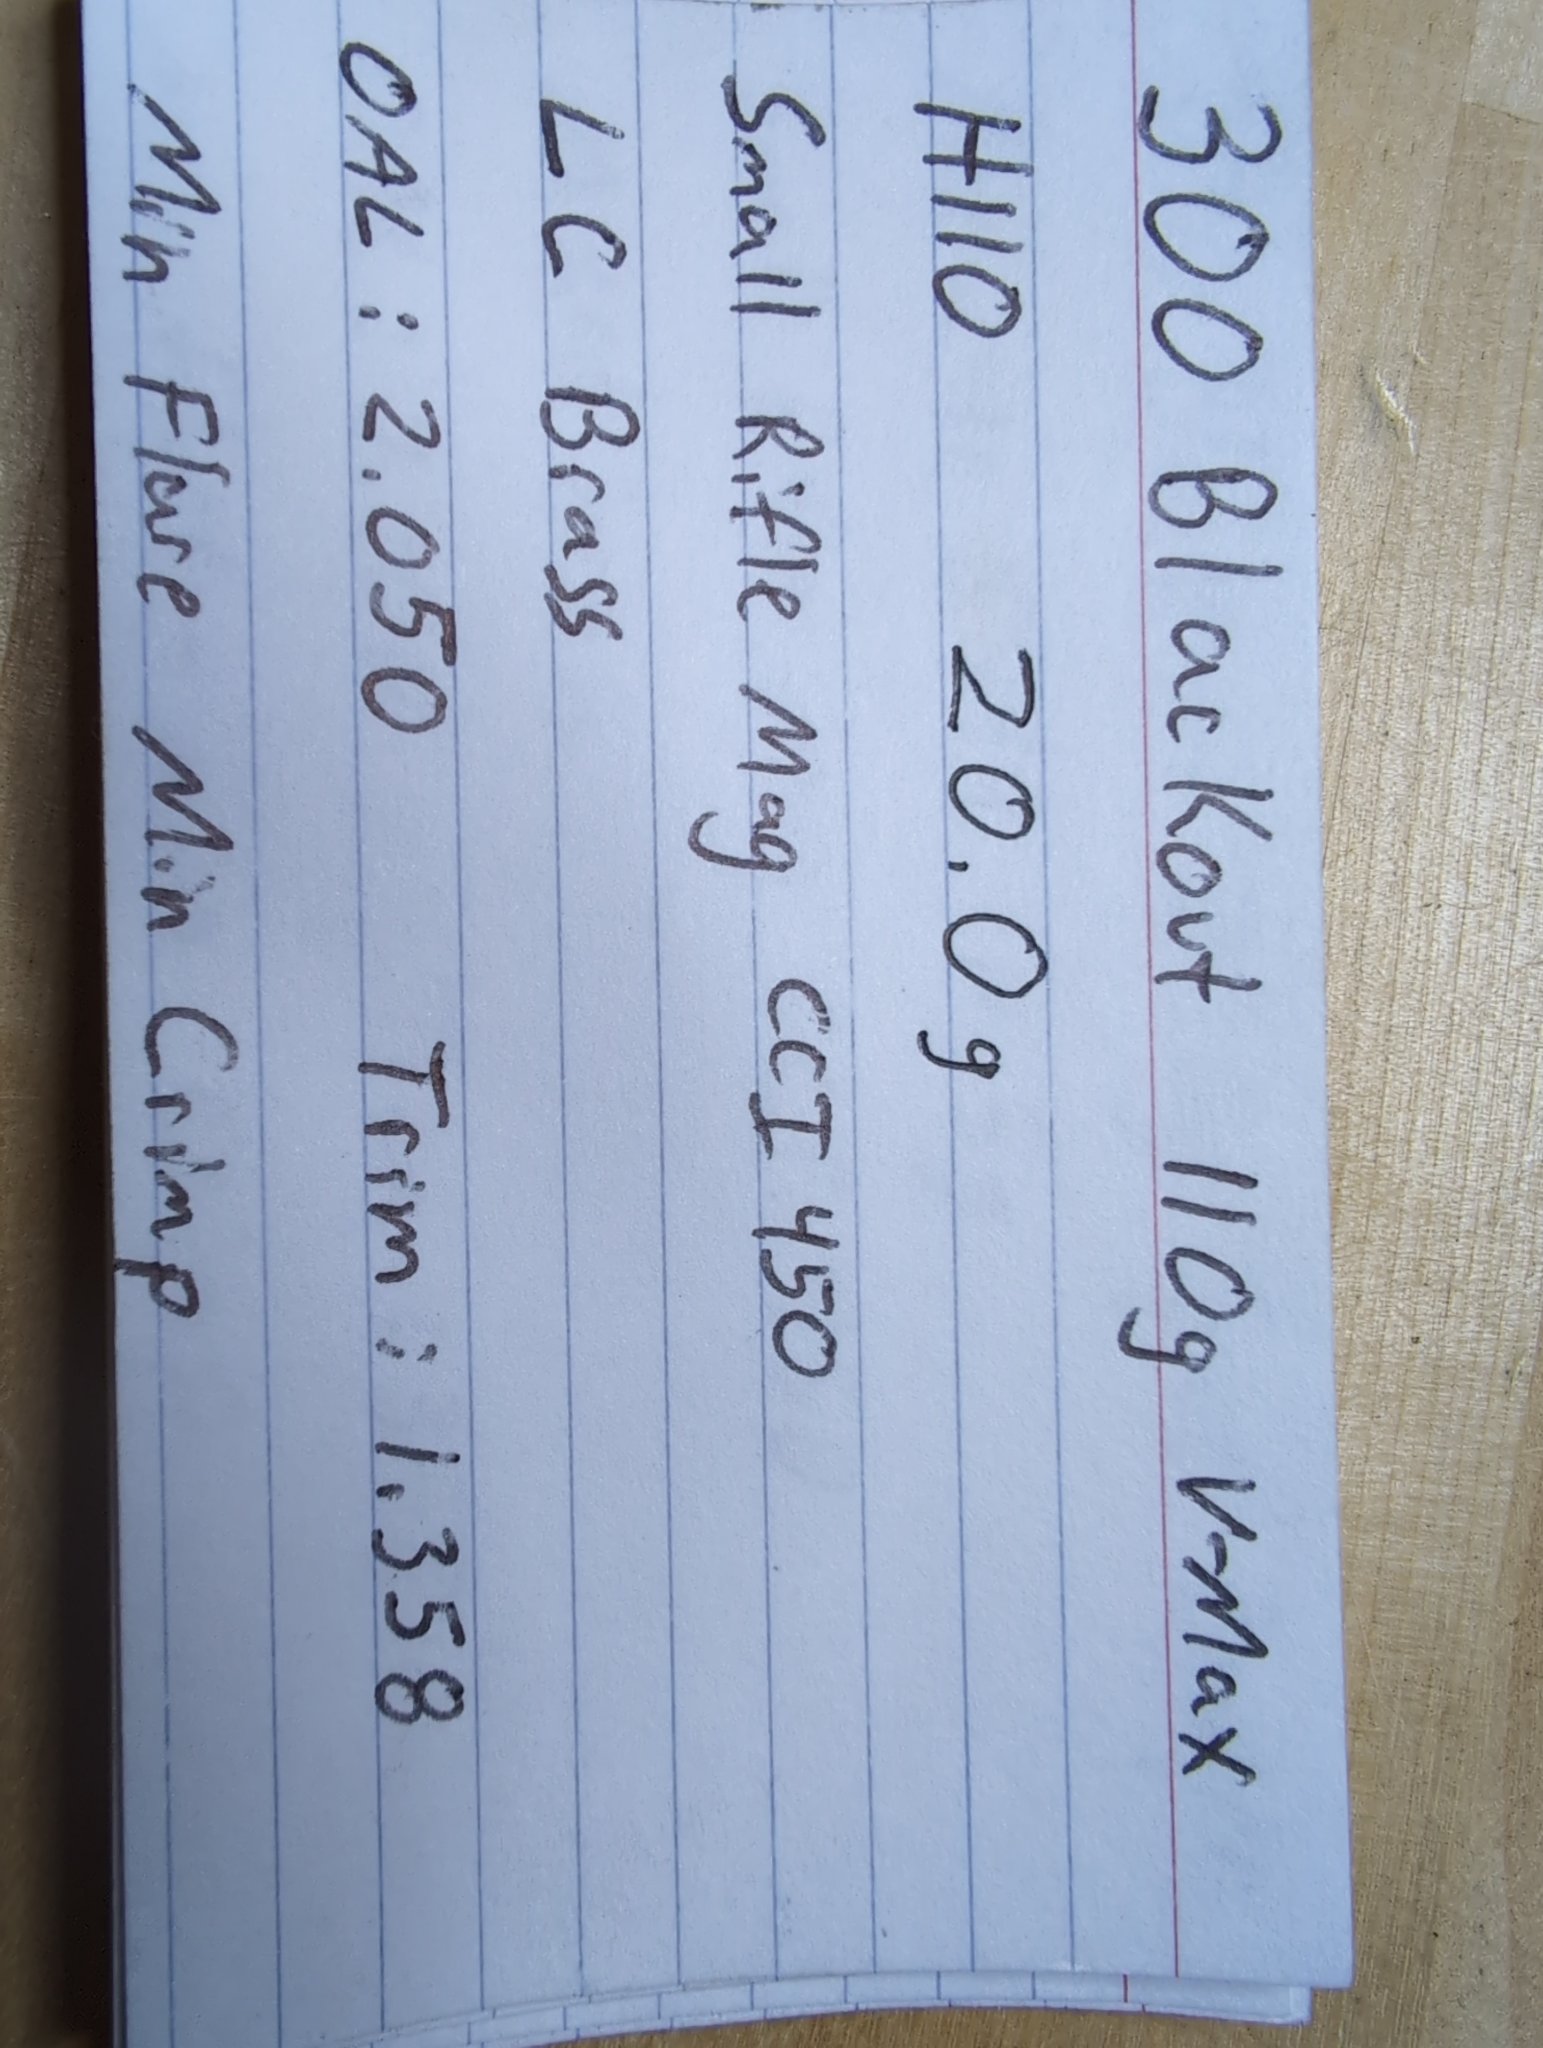 300 Blackout 110g V-Max
H110 20.0g
Small Rifle Mag CCI 450
LC Brass
OAL: 2.050 Trim: 1.358
Min Flare Min Crimp